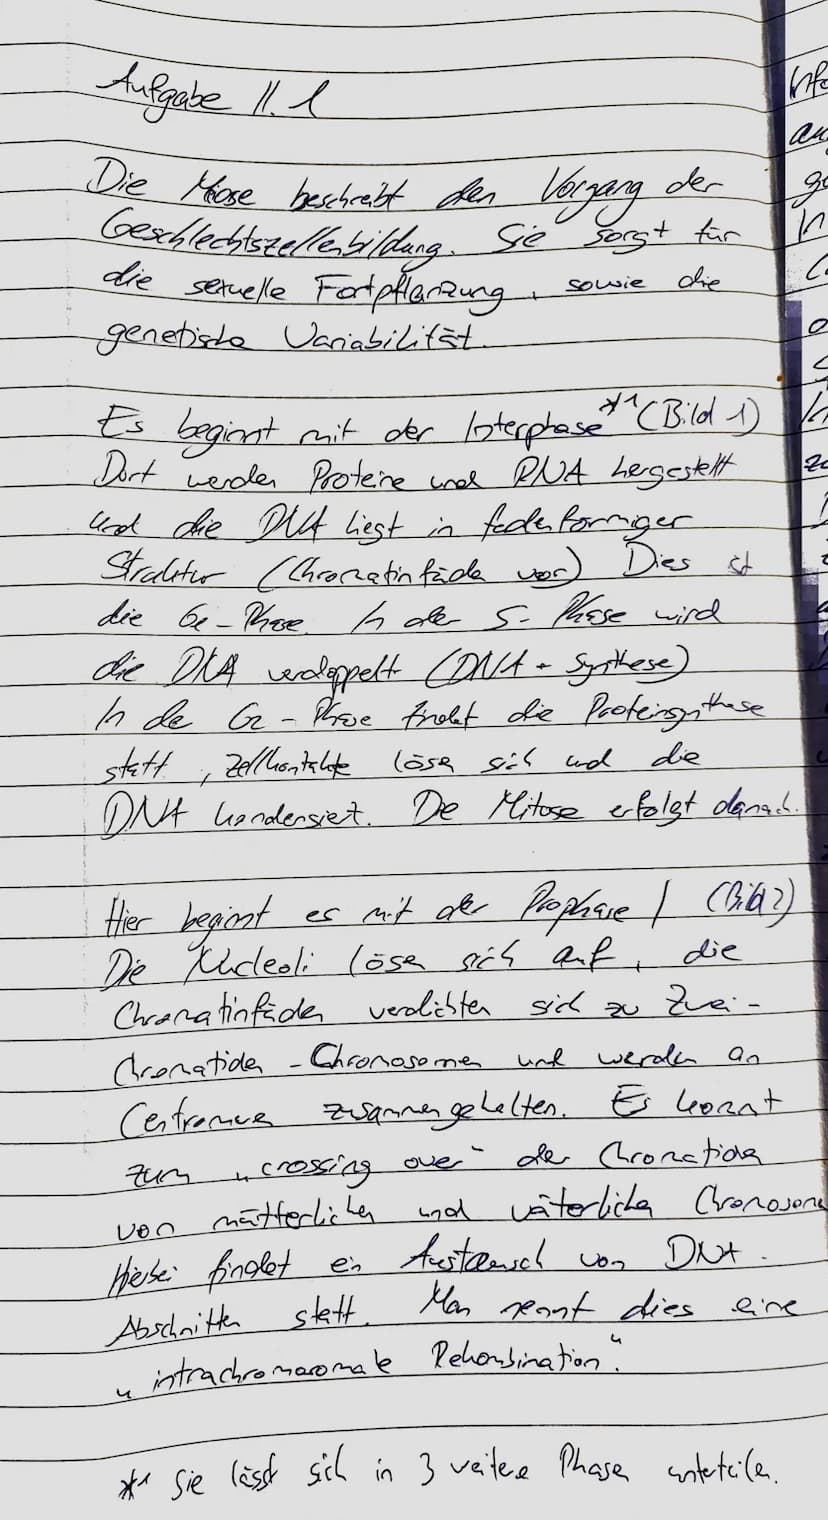 Aufgabe II. 1
Die Miose beschreibt den Vorgang der
Geschlechtszellenbildung. Sie sorgt für
die sexuelle Fortpflanzung, sowie die
genetische Variabilität.
Es beginnt mit der Interphase *1 (Bild 1)
Dort werden Proteine und RNA hergestellt
und die DNA liegt in fadenförmiger
Struktur (Chromatinfäden vor) Dies ist
die G1-Phase. In der S-Phase wird
die DNA verdoppelt (DNA-Synthese)
In der G2-Phase findet die Proteinsynthese
statt, Zellkontakte lösen sich und die
DNA kondensiert. Die Mitose erfolgt danach.
Hier beginnt es mit der Prophase I (Bild 2)
Die Nucleoli lösen sich auf, die
Chromatinfäden verdichten sich zu Zwei-
Chromatiden-Chromosomen und werden an
Centromer zusammengehalten. Es kommt
zum "crossing over" der Chromatiden
von mütterlichen und väterlichen Chromosomen
Hierbei findet ein Austausch von DNA-
Abschnitten statt. Man nennt dies eine
"intrachromosomale Rekombination".
*1 Sie lässt sich in 3 weitere Phasen unterteilen.